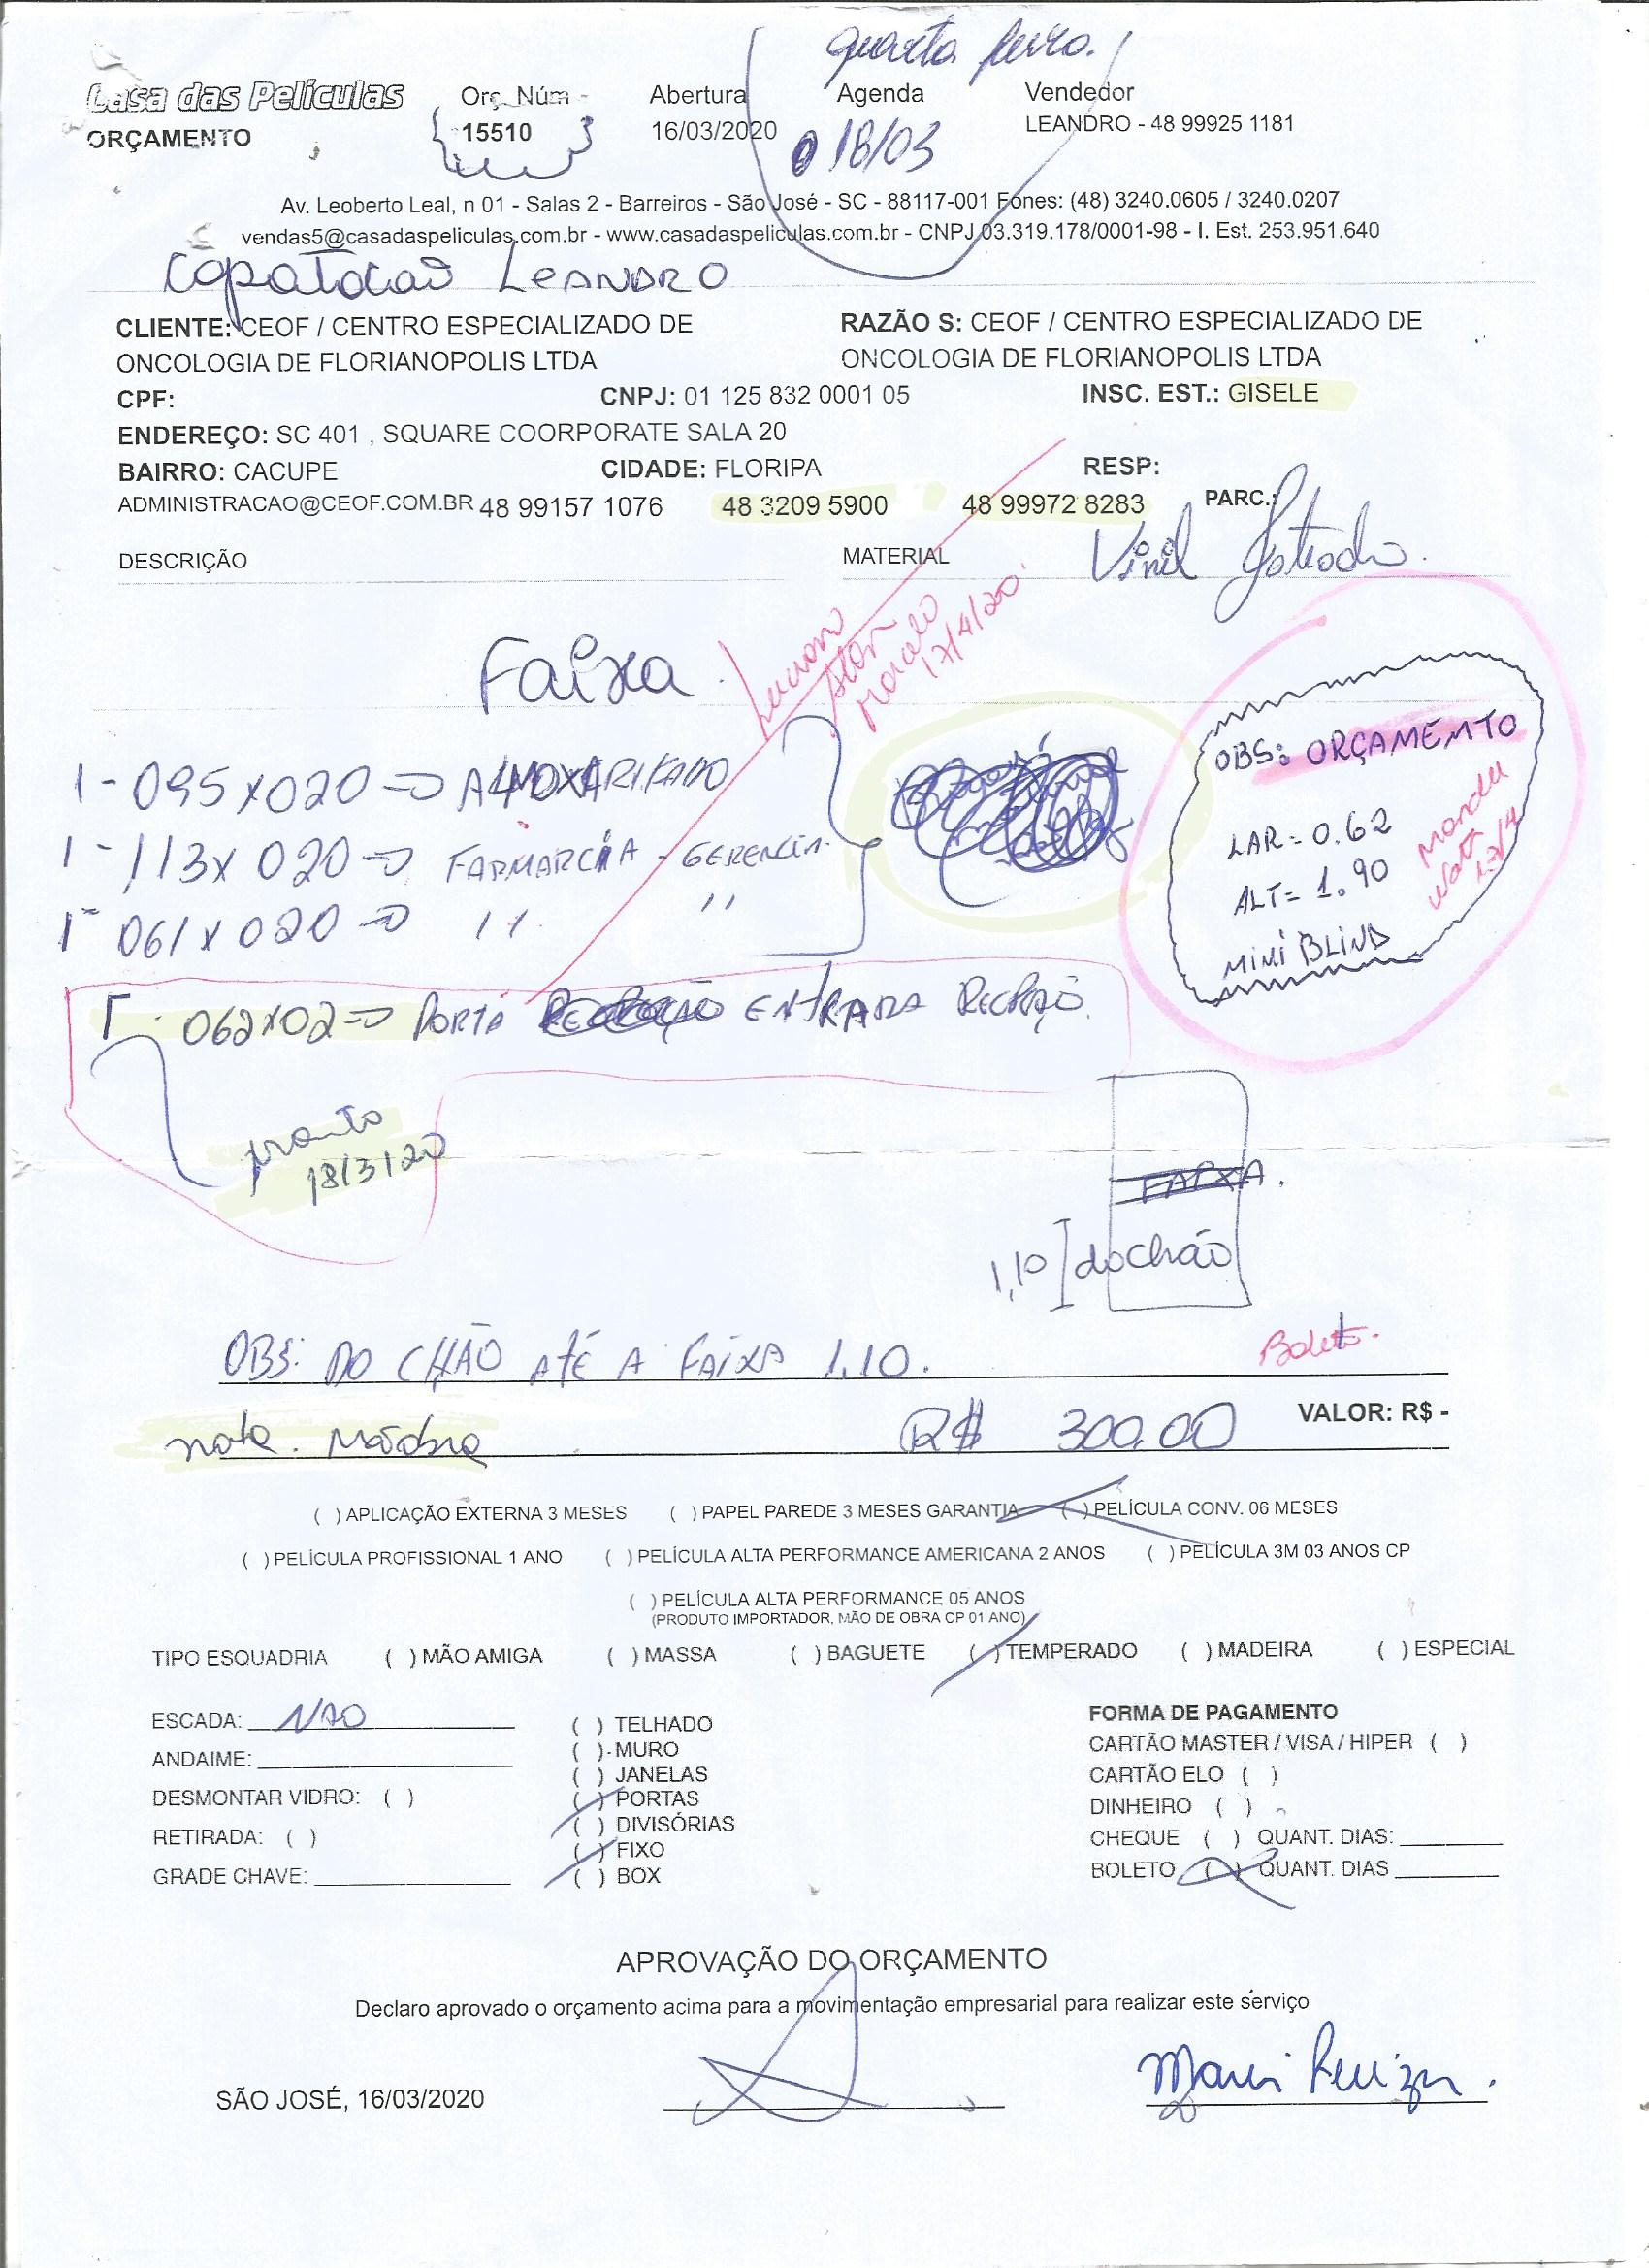 quarta feira.
Casa das Películas
Orç. Núm
Abertura
Agenda
Vendedor
ORÇAMENTO
15510
16/03/2020
18/03
LEANDRO - 48 99925 1181
Av. Leoberto Leal, n 01 - Salas 2 - Barreiros - São José - SC - 88117-001 Fones: (48) 3240.0605 / 3240.0207
vendas5@casadaspeliculas.com.br - www.casadaspeliculas.com.br - CNPJ 03.319.178/0001-98 - I. Est. 253.951.640
LEANDRO
CLIENTE: CEOF / CENTRO ESPECIALIZADO DE
ONCOLOGIA DE FLORIANOPOLIS LTDA
RAZÃO S: CEOF / CENTRO ESPECIALIZADO DE
ONCOLOGIA DE FLORIANOPOLIS LTDA
CPF:
CNPJ: 01 125 832 0001 05
INSC. EST.: GISELE
ENDEREÇO: SC 401 , SQUARE COORPORATE SALA 20
BAIRRO: CACUPE
CIDADE: FLORIPA
RESP:
ADMINISTRACAO@CEOF.COM.BR 48 99157 1076
48 3209 5900
48 99972 8283
PARC.:
DESCRIÇÃO
MATERIAL
Vinil Jateado.
Faixa.
Luciano
Marcelo
17/4/20
1 - 095 x 020 => ALMOXARIFADO
1 - 113 x 020 => FARMARCIA - GERENCIA.
1 - 061 x 020 => " "
1 - 062 x 02 => PORTA ENTRADA RECEPÇÃO.
OBS: ORÇAMENTO
LAR = 0.62
ALT = 1.90
MINI BLIND
Mandei
Nota
17/4
pronto
18/3/20
FAIXA.
1,10 do chão
OBS: DO CHÃO ATÉ A FAIXA 1.10.
Boleto.
nota. Mãobra
R$ 300,00
VALOR: R$ -
( ) APLICAÇÃO EXTERNA 3 MESES ( ) PAPEL PAREDE 3 MESES GARANTIA ( ) PELÍCULA CONV. 06 MESES
( ) PELÍCULA PROFISSIONAL 1 ANO ( ) PELÍCULA ALTA PERFORMANCE AMERICANA 2 ANOS ( ) PELÍCULA 3M 03 ANOS CP
( ) PELÍCULA ALTA PERFORMANCE 05 ANOS
(PRODUTO IMPORTADOR, MÃO DE OBRA CP 01 ANO)
TIPO ESQUADRIA ( ) MÃO AMIGA ( ) MASSA ( ) BAGUETE ( ) TEMPERADO ( ) MADEIRA ( ) ESPECIAL
ESCADA: NÃO
ANDAIME:
DESMONTAR VIDRO: ( )
RETIRADA: ( )
GRADE CHAVE:
( ) TELHADO
( ) MURO
( ) JANELAS
( ) PORTAS
( ) DIVISÓRIAS
( ) FIXO
( ) BOX
FORMA DE PAGAMENTO
CARTÃO MASTER / VISA / HIPER ( )
CARTÃO ELO ( )
DINHEIRO ( )
CHEQUE ( ) QUANT. DIAS:
BOLETO ( ) QUANT. DIAS
APROVAÇÃO DO ORÇAMENTO
Declaro aprovado o orçamento acima para a movimentação empresarial para realizar este serviço
SÃO JOSÉ, 16/03/2020